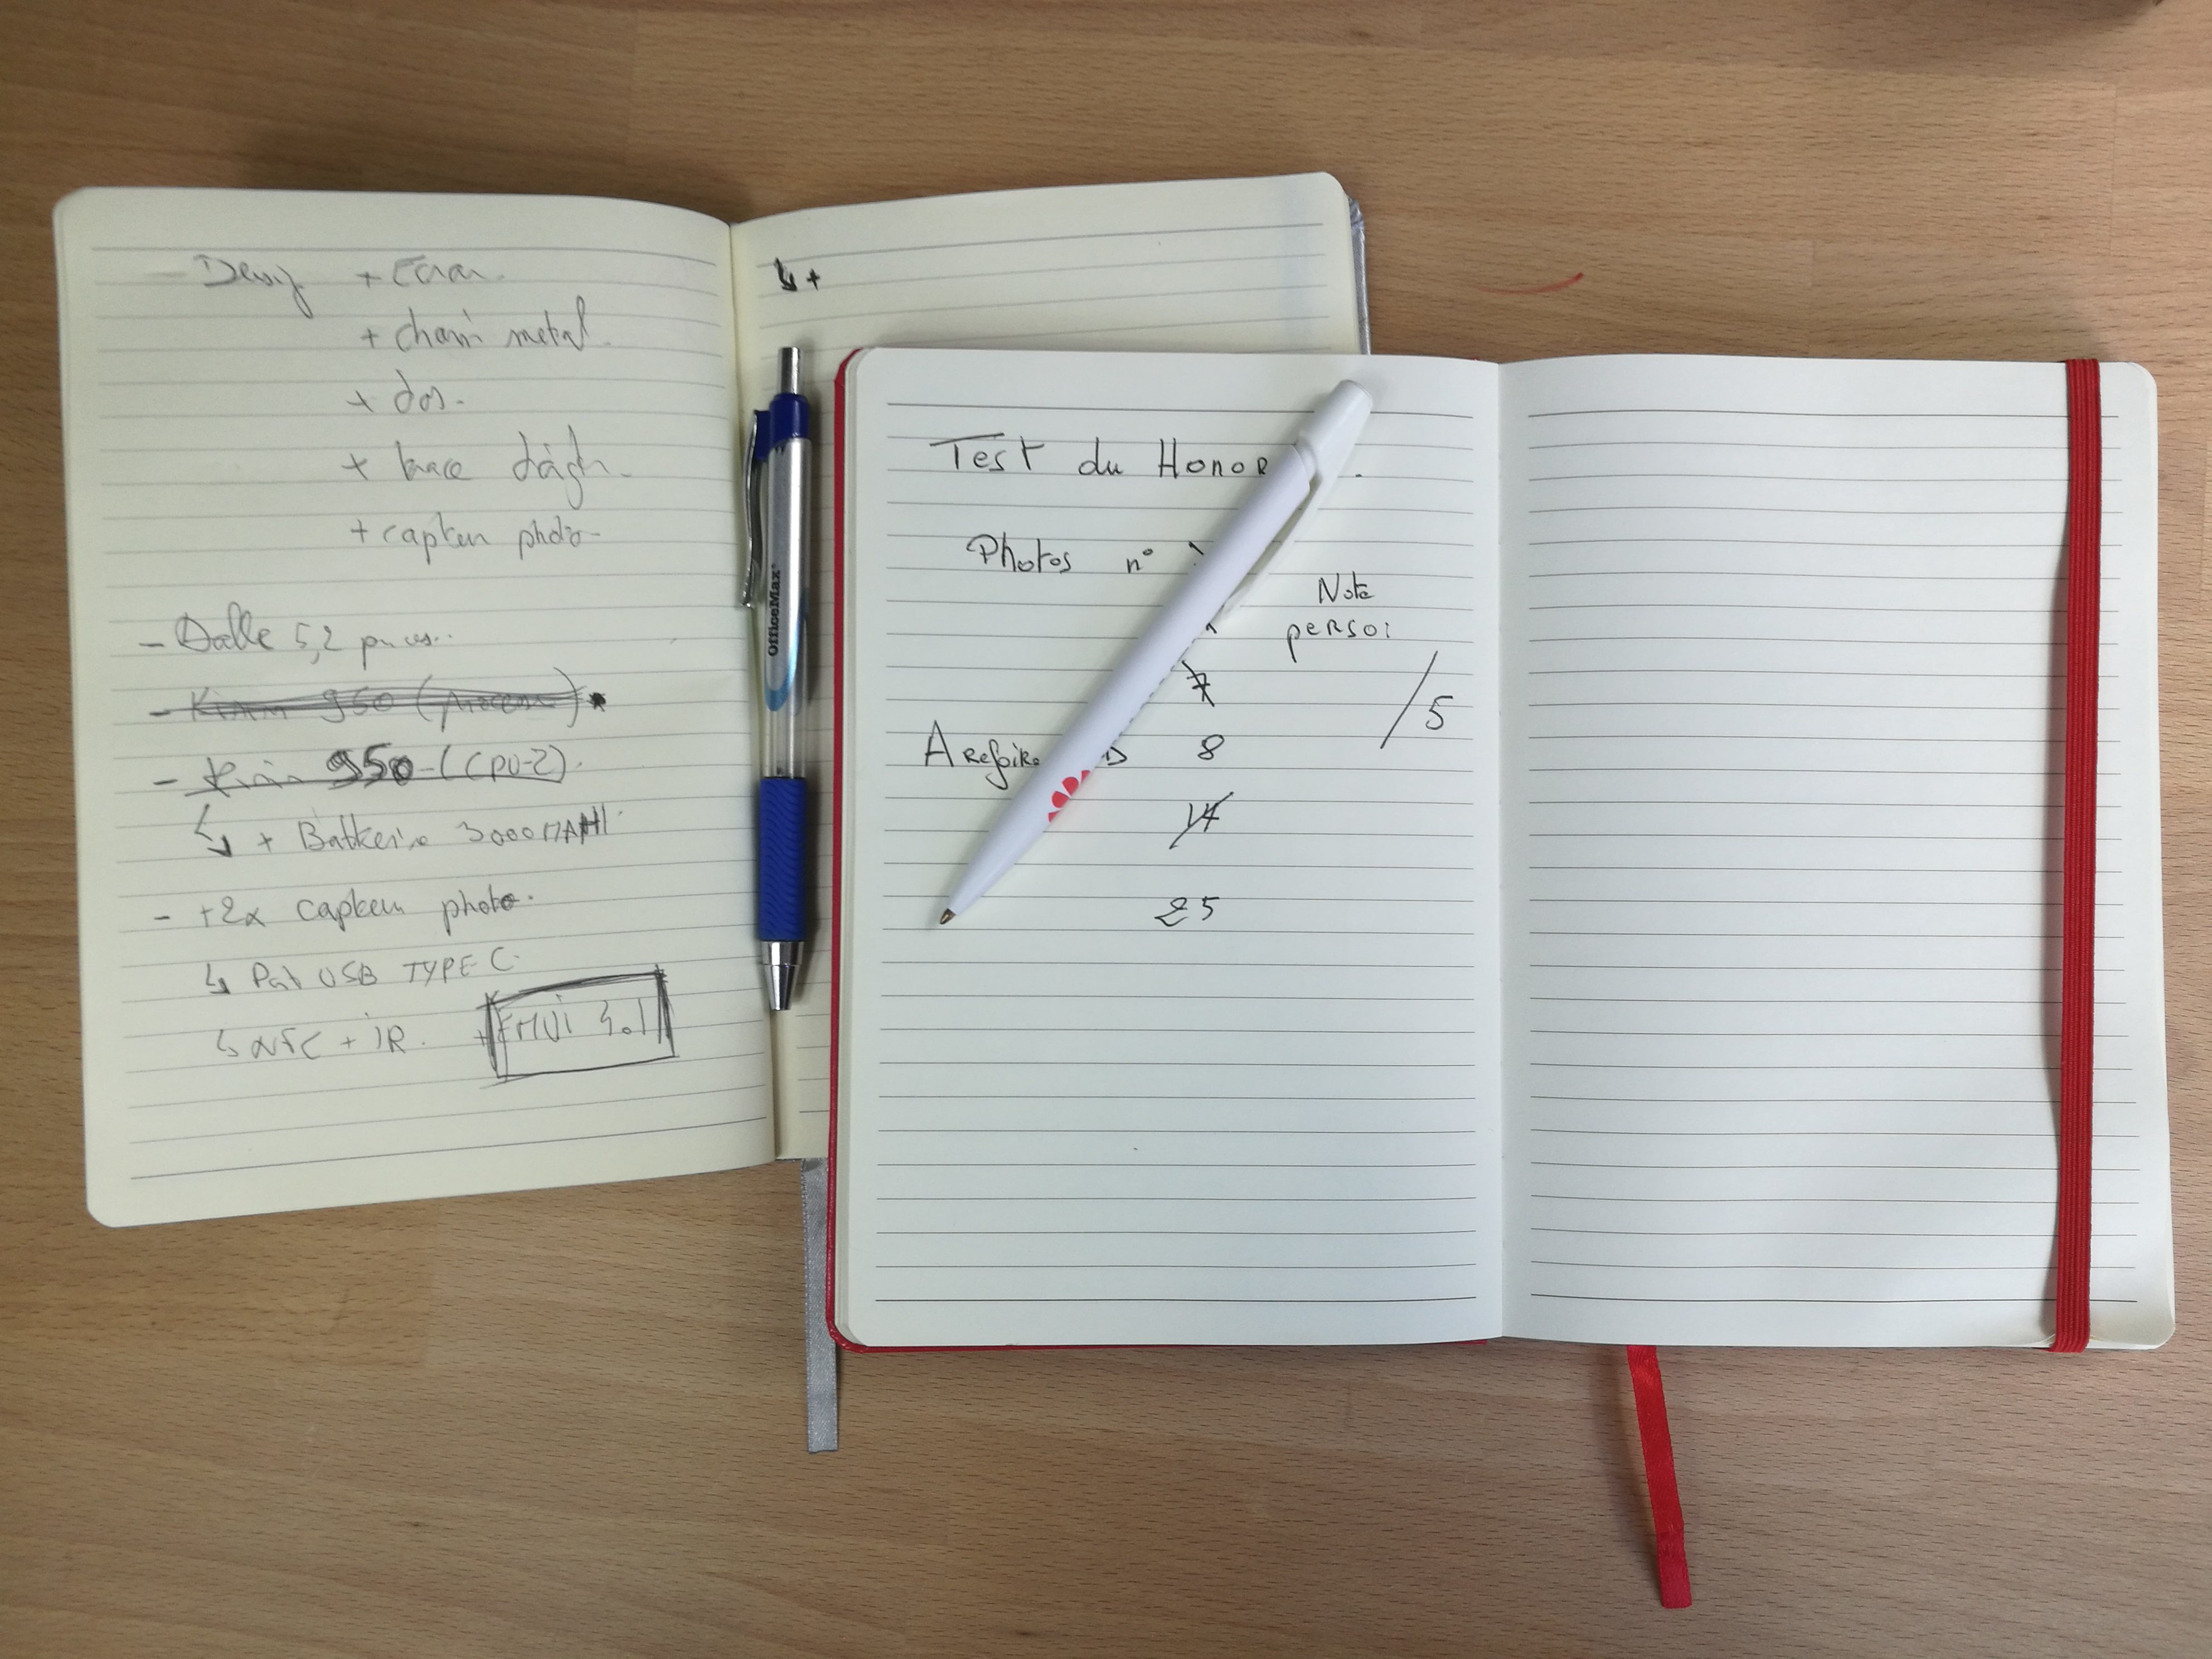 Design + Ecran
+ chami metal.
+ dos.
+ trace
+ capteur photo
- Dalle 5,2 pouces..
- Kirin 950 (processeur)
- Kirin 950 (CPU-Z).
+ Batterie 3000 MAH
- +2x capteur photo.
↳ Port USB TYPE C.
↳ NFC + IR. + EMUI 4.1
↳ +
OfficeMax
Test du Honor
Photos n°
Note
perso:
7
/5
8
14
25